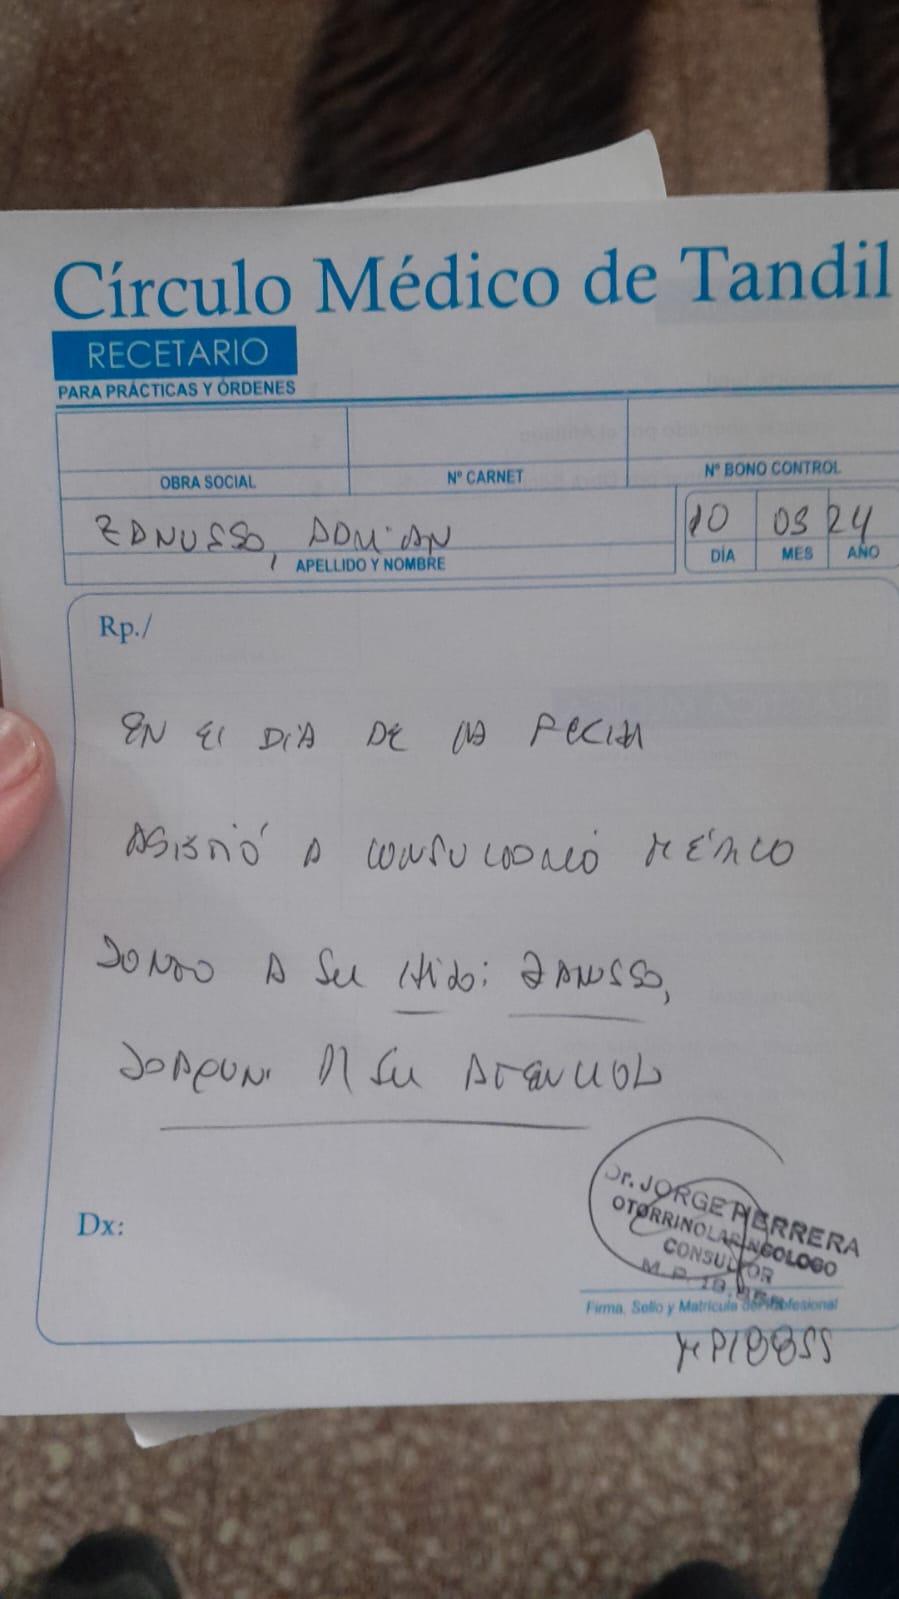 Círculo Médico de Tandil
RECETARIO
PARA PRÁCTICAS Y ÓRDENES
OBRA SOCIAL Nº CARNET Nº BONO CONTROL
ZANUSSO, ADRIAN 10 03 24
APELLIDO Y NOMBRE DÍA MES AÑO
Rp./
EN EL DIA DE LA FECHA
ASISTIÓ A CONSULTORIO MÉDICO
JUNTO A SU HIJO: ZANUSSO,
JOAQUIN SU ATENCION
Dx:
Dr. JORGE HERRERA
OTORRINOLARINGOLOGO
CONSULTOR
M.P.
Firma, Sello y Matrícula del Profesional